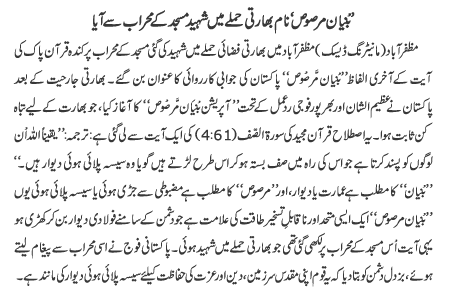 ’’بُنیان مرصوص‘‘ نام بھارتی حملے میں شہید مسجد کے محراب سے آیا
مظفر آباد (مانیٹرنگ ڈیسک) مظفرآباد میں بھارتی فضائی حملے میں شہید کی گئی مسجد کے محراب پر کندہ قرآن پاک کی
آیت کے آخری الفاظ ’’بنیان مرصوص‘‘ پاکستان کی جوابی کارروائی کا عنوان بن گئے۔ بھارتی جارحیت کے بعد
پاکستان نے عظیم الشان اور بھرپور فوجی ردعمل کے تحت ’’آپریشن بُنیان مرصوص‘‘ کا آغاز کیا، جو بھارت کے لیے تباہ
کن ثابت ہوا۔ یہ اصطلاح قرآن مجید کی سورۃ الصّف (4:61) کی ایک آیت سے لی گئی ہے: ترجمہ: ’’یقیناً اللہ اُن
لوگوں کو پسند کرتا ہے جو اس کی راہ میں صف بستہ ہو کر اس طرح لڑتے ہیں گویا وہ سیسہ پلائی ہوئی دیوار ہیں۔‘‘
’’بُنیان‘‘ کا مطلب ہے عمارت یا دیوار، اور ’’مرصوص‘‘ کا مطلب ہے مضبوطی سے جڑی ہوئی یا سیسہ پلائی ہوئی یوں
’’بُنیان مرصوص‘‘ ایک ایسی متحد اور ناقابلِ تسخیر طاقت کی علامت ہے جو دشمن کے سامنے فولادی دیوار بن کر کھڑی ہو
یہی آیت اُس مسجد کے محراب پر لکھی گئی تھی جو بھارتی حملے میں شہید ہوئی۔ پاکستانی فوج نے اسی محراب سے پیغام لیتے
ہوئے، بزدل دشمن کو بتا دیا کہ یہ قوم اپنی مقدس سرزمین، دین اور عزت کی حفاظت کیلئے سیسہ پلائی ہوئی دیوار کی مانند ہے۔